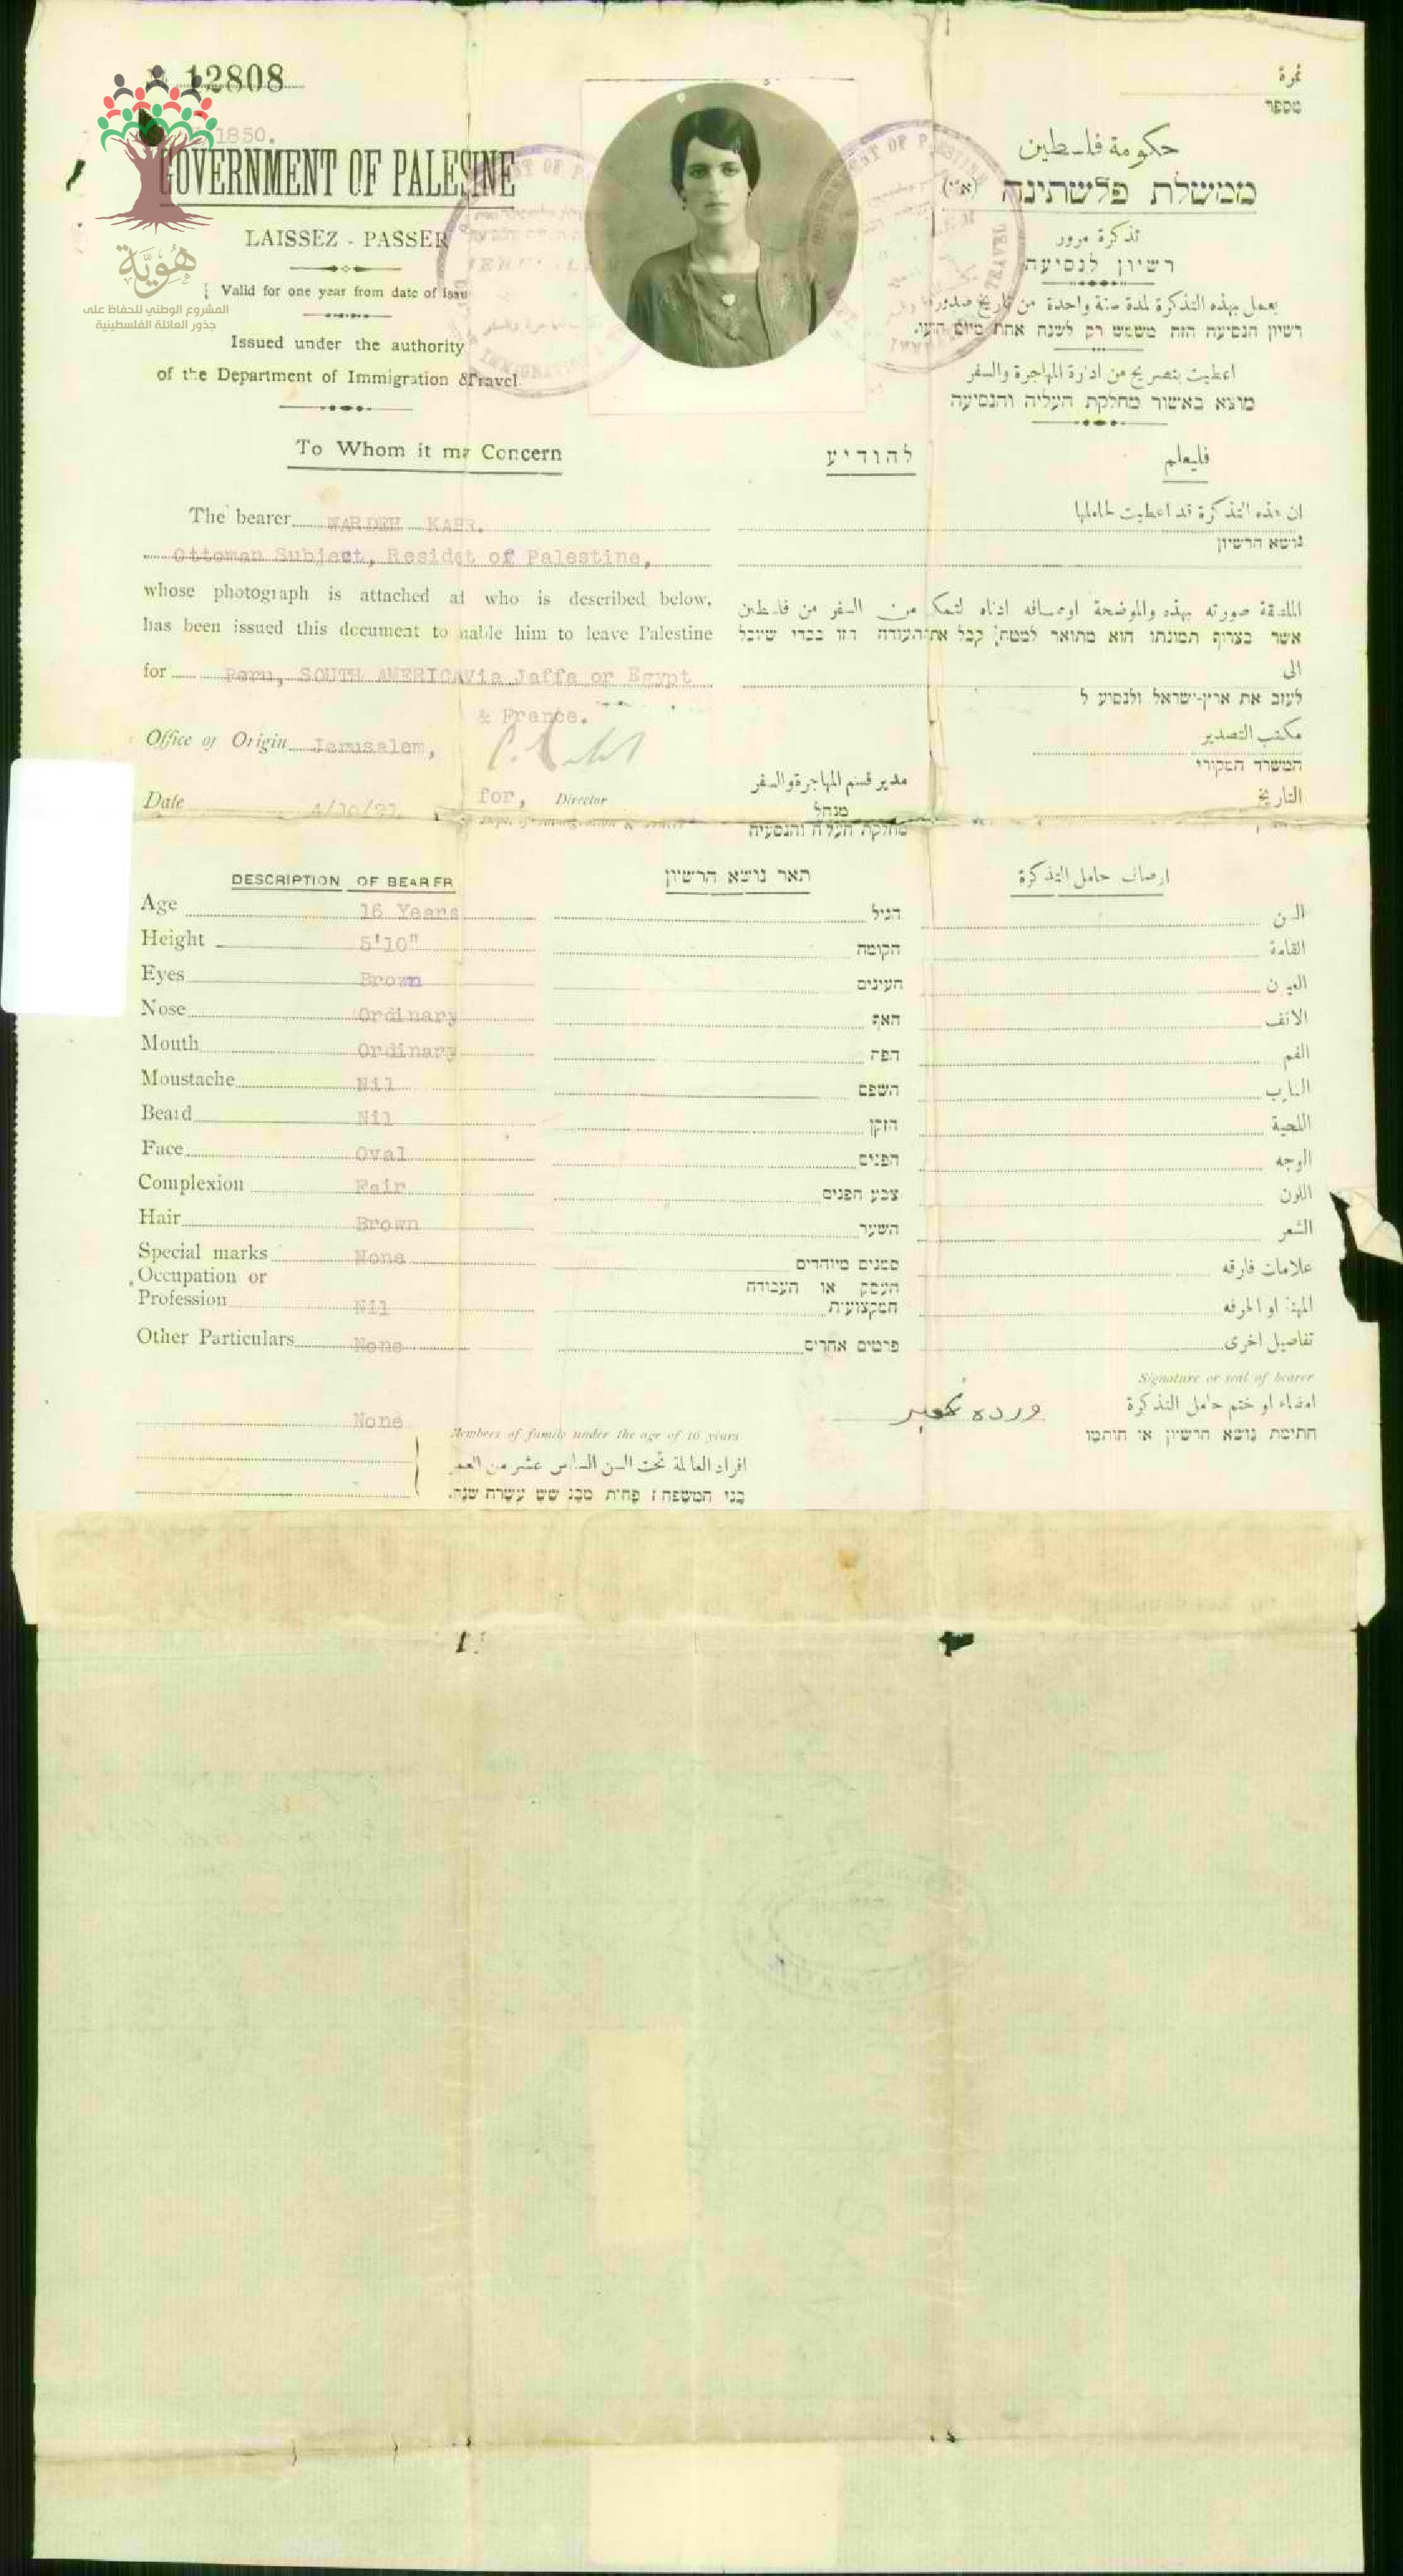 12808
1850.
هُوِيَّة
المشروع الوطني للحفاظ على
جذور العائلة الفلسطينية
GOVERNMENT OF PALESINE
LAISSEZ - PASSER
Valid for one year from date of issu
Issued under the authority
of the Department of Immigration & Travel
نمرة
מספר
حكومة فلسطين
ממשלת פלשתינה (א״י)
تذكرة مرور
רשיון לנסיעה
يعمل بهذه التذكرة لمدة سنة واحدة من تاريخ صدورها
רשיון הנסיעה הזה משמש רק לשנה אחת מיום
اعطيت بتصريح من ادارة المهاجرة والسفر
מוצא באשור מחלקת העליה והנסיעה
To Whom it ma Concern
להודיע
فليعلم
The bearer WARDEH
Ottoman Subject, Residet of Palestine,
whose photograph is attached at who is described below,
has been issued this document to nable him to leave Palestine
for Peru, SOUTH AMERICA Via Jaffa or Egypt
& France.
Office of Origin Jerusalem,
Date 4/10/
for, Director
ان هذه التذكرة قد اعطيت لحاملها
נושא הרשיון
الملصقة صورته بهذه والموضحة اوصافه ادناه من السفر من فلسطين
אשר בצרוף תמונתו הוא מתואר למטה קבל את התעודה הזו בכדי שיוכל
الى
לעזוב את ארץ-ישראל ולנסיע ל
مكتب التصدير
המשרד המקורי
التاريخ
مدير قسم المهاجرة والسفر
מנהל
מחלקת העליה והנסיעה
DESCRIPTION OF BEARER
תאר נושא הרשיון
اوصاف حامل التذكرة
Age 16 Years הגיל
Height 5'10" הקומה القامة
Eyes Brown העינים
Nose Ordinary האף الانف
Mouth Ordinary הפה الفم
Moustache Nil השפם
Beard Nil הזקן اللحية
Face Oval הפנים الوجه
Complexion Fair צבע הפנים اللون
Hair Brown השער الشعر
Special marks None סמנים מיוחדים علامات فارقه
Occupation or העסק או העבודה
Profession Nil המקצועית او الحرفه
Other Particulars None פרטים אחרים تفاصيل اخرى
Signature or seal of bearer
امضاء او ختم حامل التذكرة
חתימת נושא הרשיון או חותמו
ورده
None
Members of family under the age of 16 years
افراد العائلة تحت السن السادس عشر من العمر
בני המשפחה פחות מבני שש עשרה שנה.